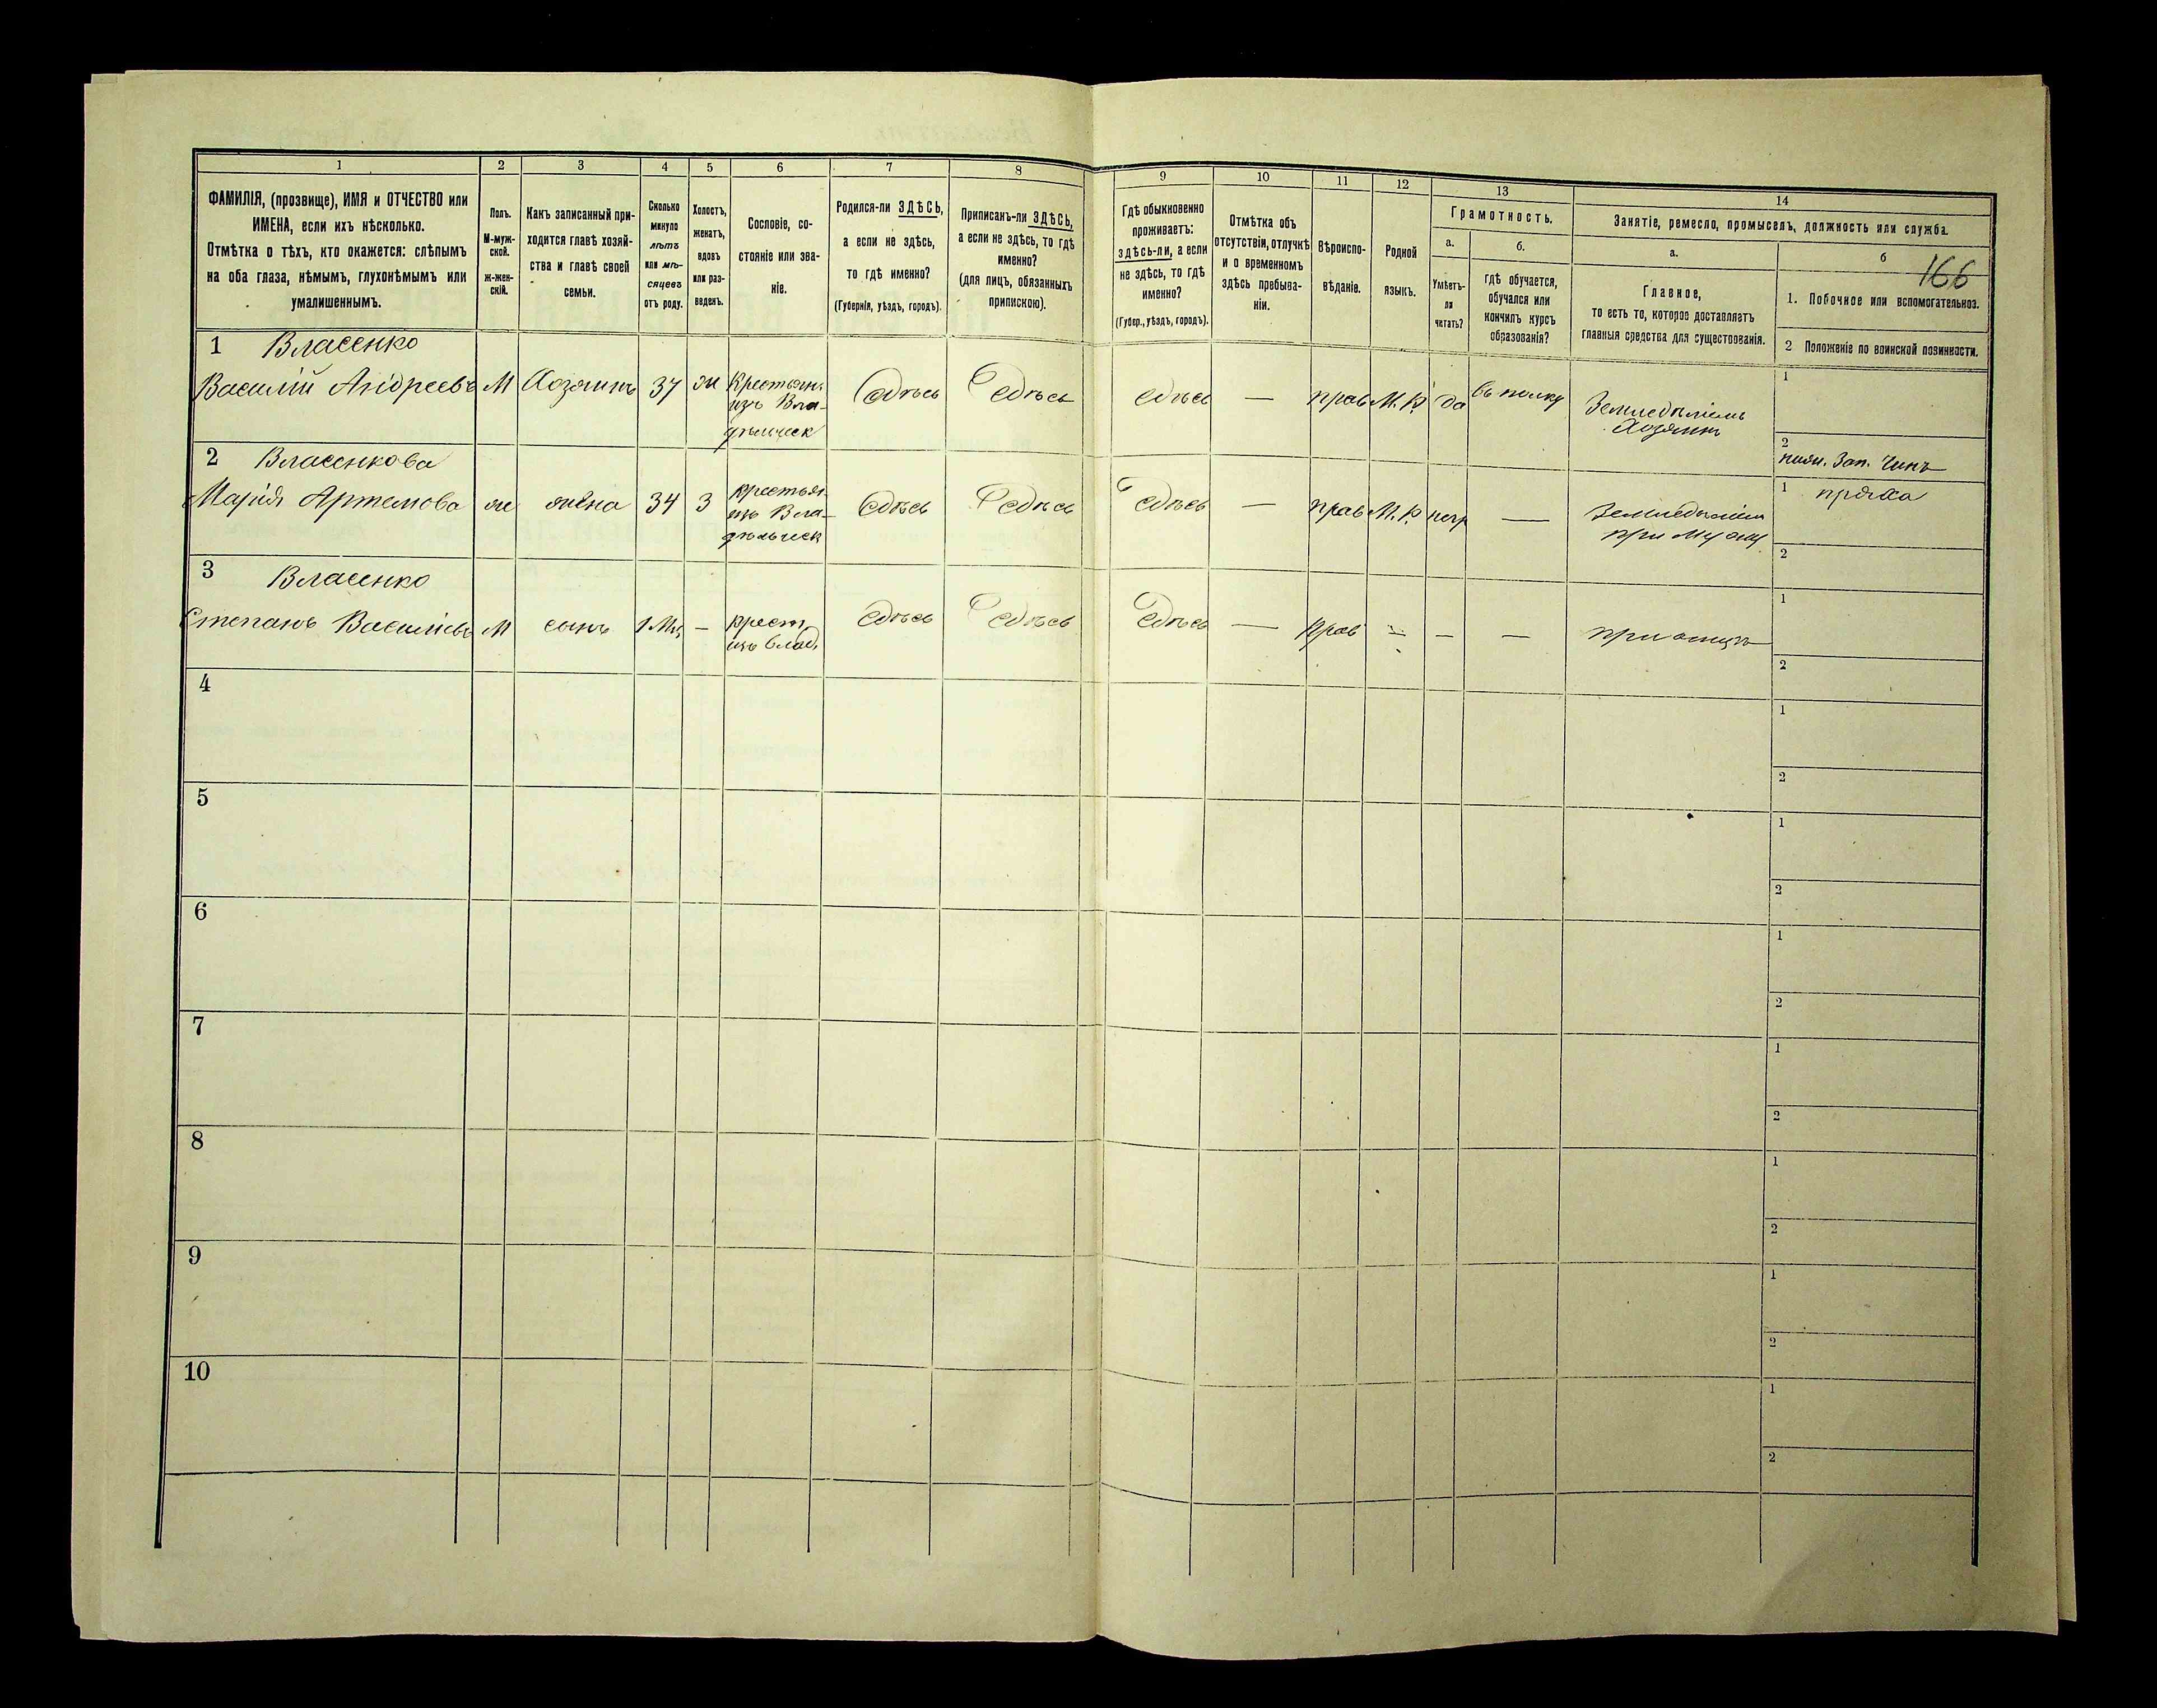 1 2 3 4 5 6 7 8 9 10 11 12 13 14
ФАМИЛІЯ, (прозвище), ИМЯ и ОТЧЕСТВО или
ИМЕНА, если ихъ нѣсколько.
Отмѣтка о тѣхъ, кто окажется: слѣпымъ
на оба глаза, нѣмымъ, глухонѣмымъ или
умалишеннымъ.
Полъ.
М-муж-
ской.
ж-жен-
скій.
Какъ записанный при-
ходится главѣ хозяй-
ства и главѣ своей
семьи.
Сколько
минуло
лѣтъ
или мѣ-
сяцевъ
отъ роду.
Холостъ,
женатъ,
вдовъ
или раз-
веденъ.
Сословіе, со-
стояніе или зва-
ніе.
Родился-ли ЗДѢСЬ,
а если не здѣсь,
то гдѣ именно?
(Губернія, уѣздъ, городъ).
Приписанъ-ли ЗДѢСЬ,
а если не здѣсь, то гдѣ
именно?
(для лицъ, обязанныхъ
припискою).
Гдѣ обыкновенно
проживаетъ:
здѣсь-ли, а если
не здѣсь, то гдѣ
именно?
(Губер., уѣздъ, городъ).
Отмѣтка объ
отсутствіи, отлучкѣ
и о временномъ
здѣсь пребыва-
ніи.
Вѣроиспо-
вѣданіе.
Родной
языкъ.
Грамотность.
а.
Умѣетъ-
ли
читать?
б.
гдѣ обучается,
обучался или
кончилъ курсъ
образованія?
Занятіе, ремесло, промыселъ, должность или служба.
а.
Главное,
то есть то, которое доставляетъ
главныя средства для существованія.
б
166
1. Побочное или вспомогательное.
2 Положеніе по воинской повинности.
1 Власенко
Василій Андреевъ М Хозяинъ 37 ж Крестьян.
изъ Вла-
дѣльческ
Сдѣсь Сдѣсь сдѣсь — прав М. Р. да въ полку
Земледѣліемъ
Хозяинъ
1
2
Чинъ
2 Власенкова
Марія Артемова ж жена 34 З крестьян.
изъ Вла-
дѣльческ
Сдѣсь Сдѣсь Сдѣсь — прав М. Р. —
Земледѣліем
при мужу
1 пряха
2
3 Власенко
Степанъ Васильевъ М сынъ — крест.
изъ влад.
Сдѣсь Сдѣсь Сдѣсь — прав — — —
при отцѣ
1
2
4
1
2
5
1
2
6
1
2
7
1
2
8
1
2
9
1
2
10
1
2